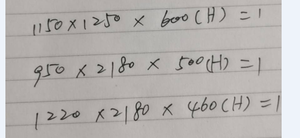 1150 × 1250 × 600 (H) = 1
950 × 2180 × 500 (H) = 1
1220 × 2180 × 460 (H) = 1